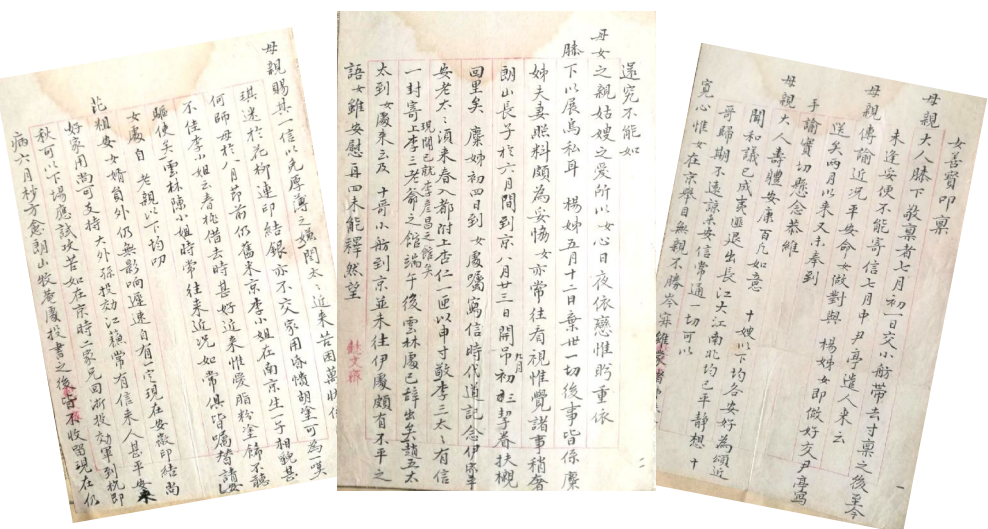 女善寶叩稟
母親大人膝下敬稟者七月初一日交小舫帶去寸稟之後至今
未逢妥便不能寄信七月中尹亭遣人來云
母親傳諭近況平安命女做對與 楊姊女即做好交尹亭寫
送矣兩月以來又未奉到
手諭實切懸念恭維
母親大人壽體安康百凡如意 十嫂以下均各安好為頌近
聞和議已成夷匪退出長江大江南北均已平靜想 十
哥歸期不遠諒未安信常通一切可以
寬心惟女在京舉目無親不勝岑寂雖蒙
一
遂究不能如
母女之親姑嫂之愛所以女心日夜依戀惟盼重依
膝下以展烏私耳 楊姊五月十二日棄世一切後事皆係麋
姊夫妻照料頗為妥協女亦常往看視惟覺諸事稍奢
朗山長子於六月間到京八月廿三日開吊九月初三挈眷扶櫬
回里矣麋姊初四日到女處囑寫信時代道記念伊家平
安老太〻須來春入都附上杏仁一匣以申寸敬李三太〻有信
一封寄上李三老爺之館端午後雲林處已辭出矣趙五太
現聞已就李彥昌之館矣
太到女處來云及 十哥小舫到京並未往伊處頗有不平之
語女雖安慰再四未能釋然望
二
母親賜其一信以免厚薄之嫌閏太〻近來苦困萬狀
琪迷於花柳連印結銀亦不交家用昏憒胡塗可為一嘆
何師母於八月節前仍舊來京李小姐在南京生一子相貌甚
不佳李小姐云春桃借去時甚好近來惟愛脂粉塗飾不聽
驅使矣雲林陳小姐時常往來近況如常俱皆囑替請安
女處自 老親以下均叨
芘粗安女婿員外仍無影響遲速自有一定現在安徽印結尚
好家用尚可支持大外孫投効江蘇常有信來人甚平安
秋可以下場應試攻苦如在京時二家兄回浙投効軍到杭即
病六月杪方愈朗山牧菴處投書之後皆不收留現在仍